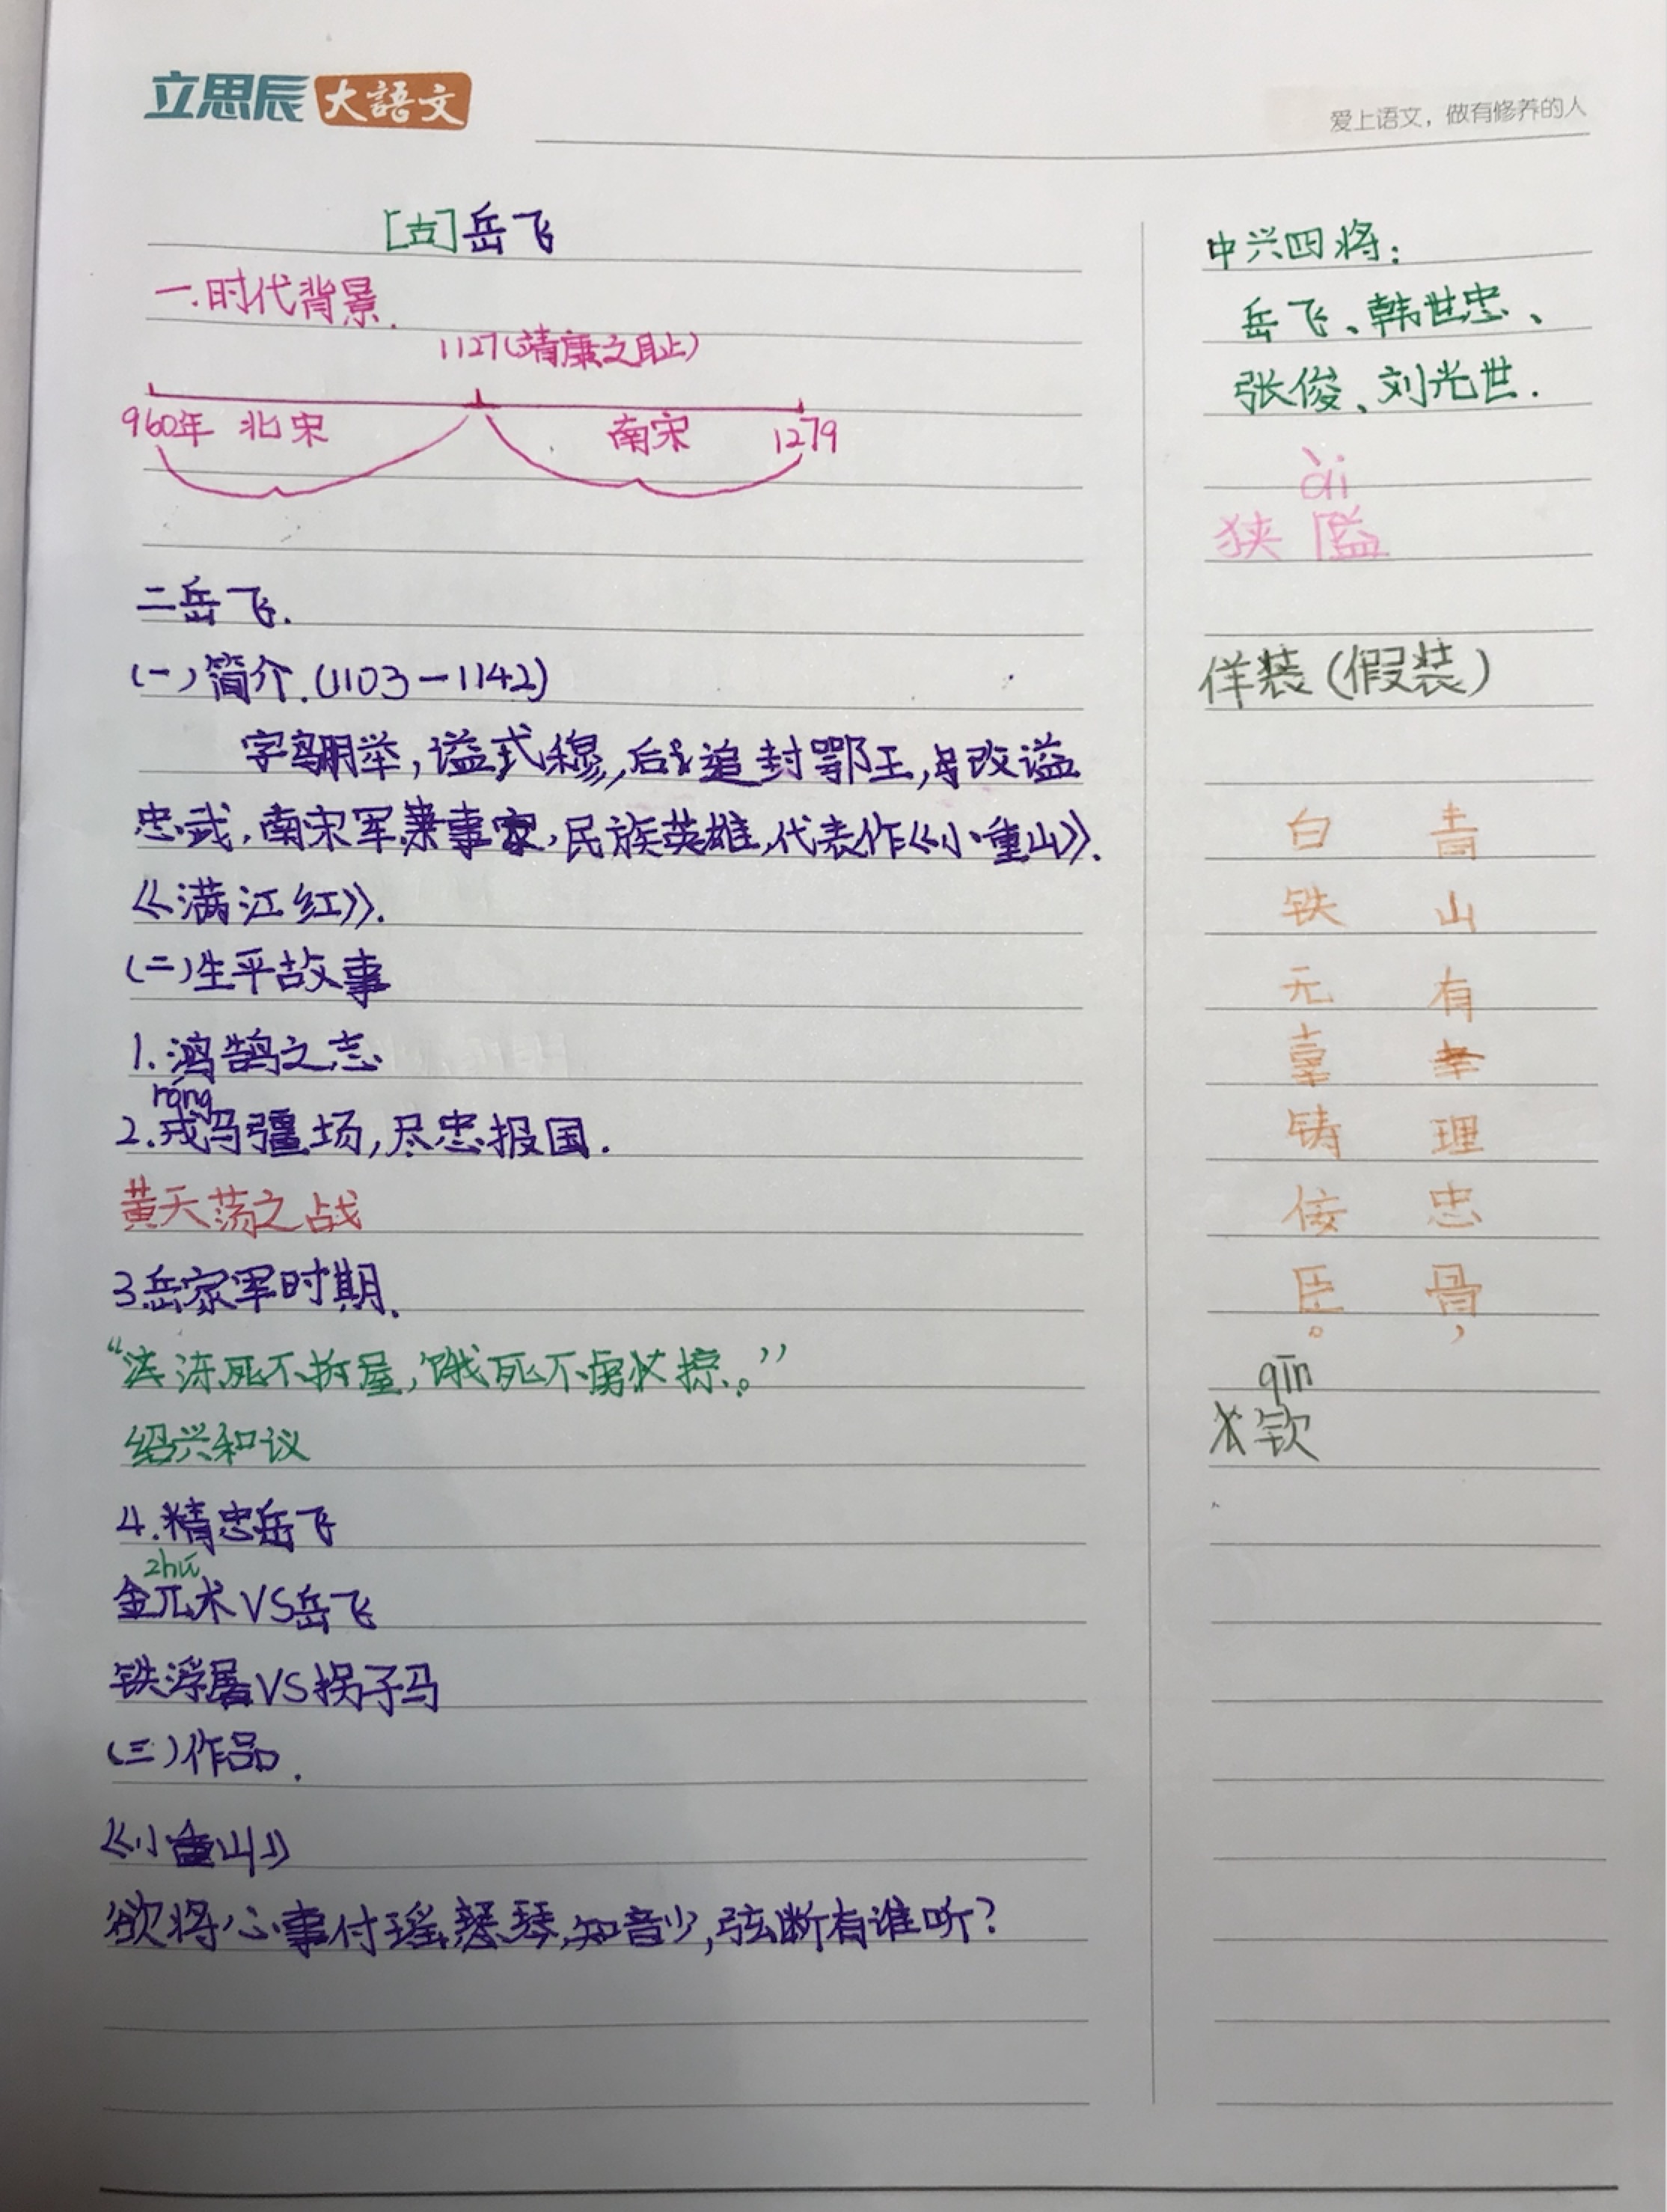 立思辰大語文
爱上语文，做有修养的人
[古]岳飞
一.时代背景.
1127(靖康之耻)
960年 北宋 南宋 1279
二岳飞.
(一)简介.(1103-1142)
字鹏举,谥武穆,后追封鄂王,改谥
忠武,南宋军事家,民族英雄,代表作《小重山》.
《满江红》.
(二)生平故事
1.鸿鹄之志
róng
2.戎马疆场,尽忠报国.
黄天荡之战
3.岳家军时期.
“冻死不拆屋,饿死不虏掠。”
绍兴和议
4.精忠岳飞
zhú
金兀术VS岳飞
铁浮屠VS拐子马
(三)作品.
《小重山》
欲将心事付瑶琴,知音少,弦断有谁听?
中兴四将:
岳飞、韩世忠、
张俊、刘光世.
ài
狭隘
佯装(假装)
白 青
铁 山
无 有
辜 幸
铸 理
佞 忠
臣。 骨,
qīn
钦